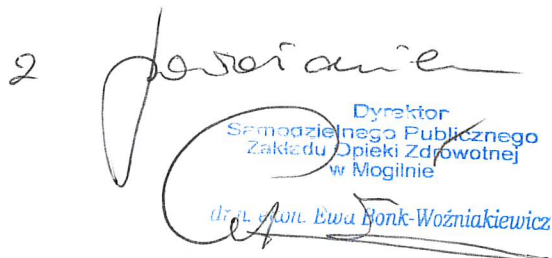 z poważaniem
Dyrektor
Samodzielnego Publicznego
Zakładu Opieki Zdrowotnej
w Mogilnie
dr n. ekon. Ewa Bonk-Woźniakiewicz